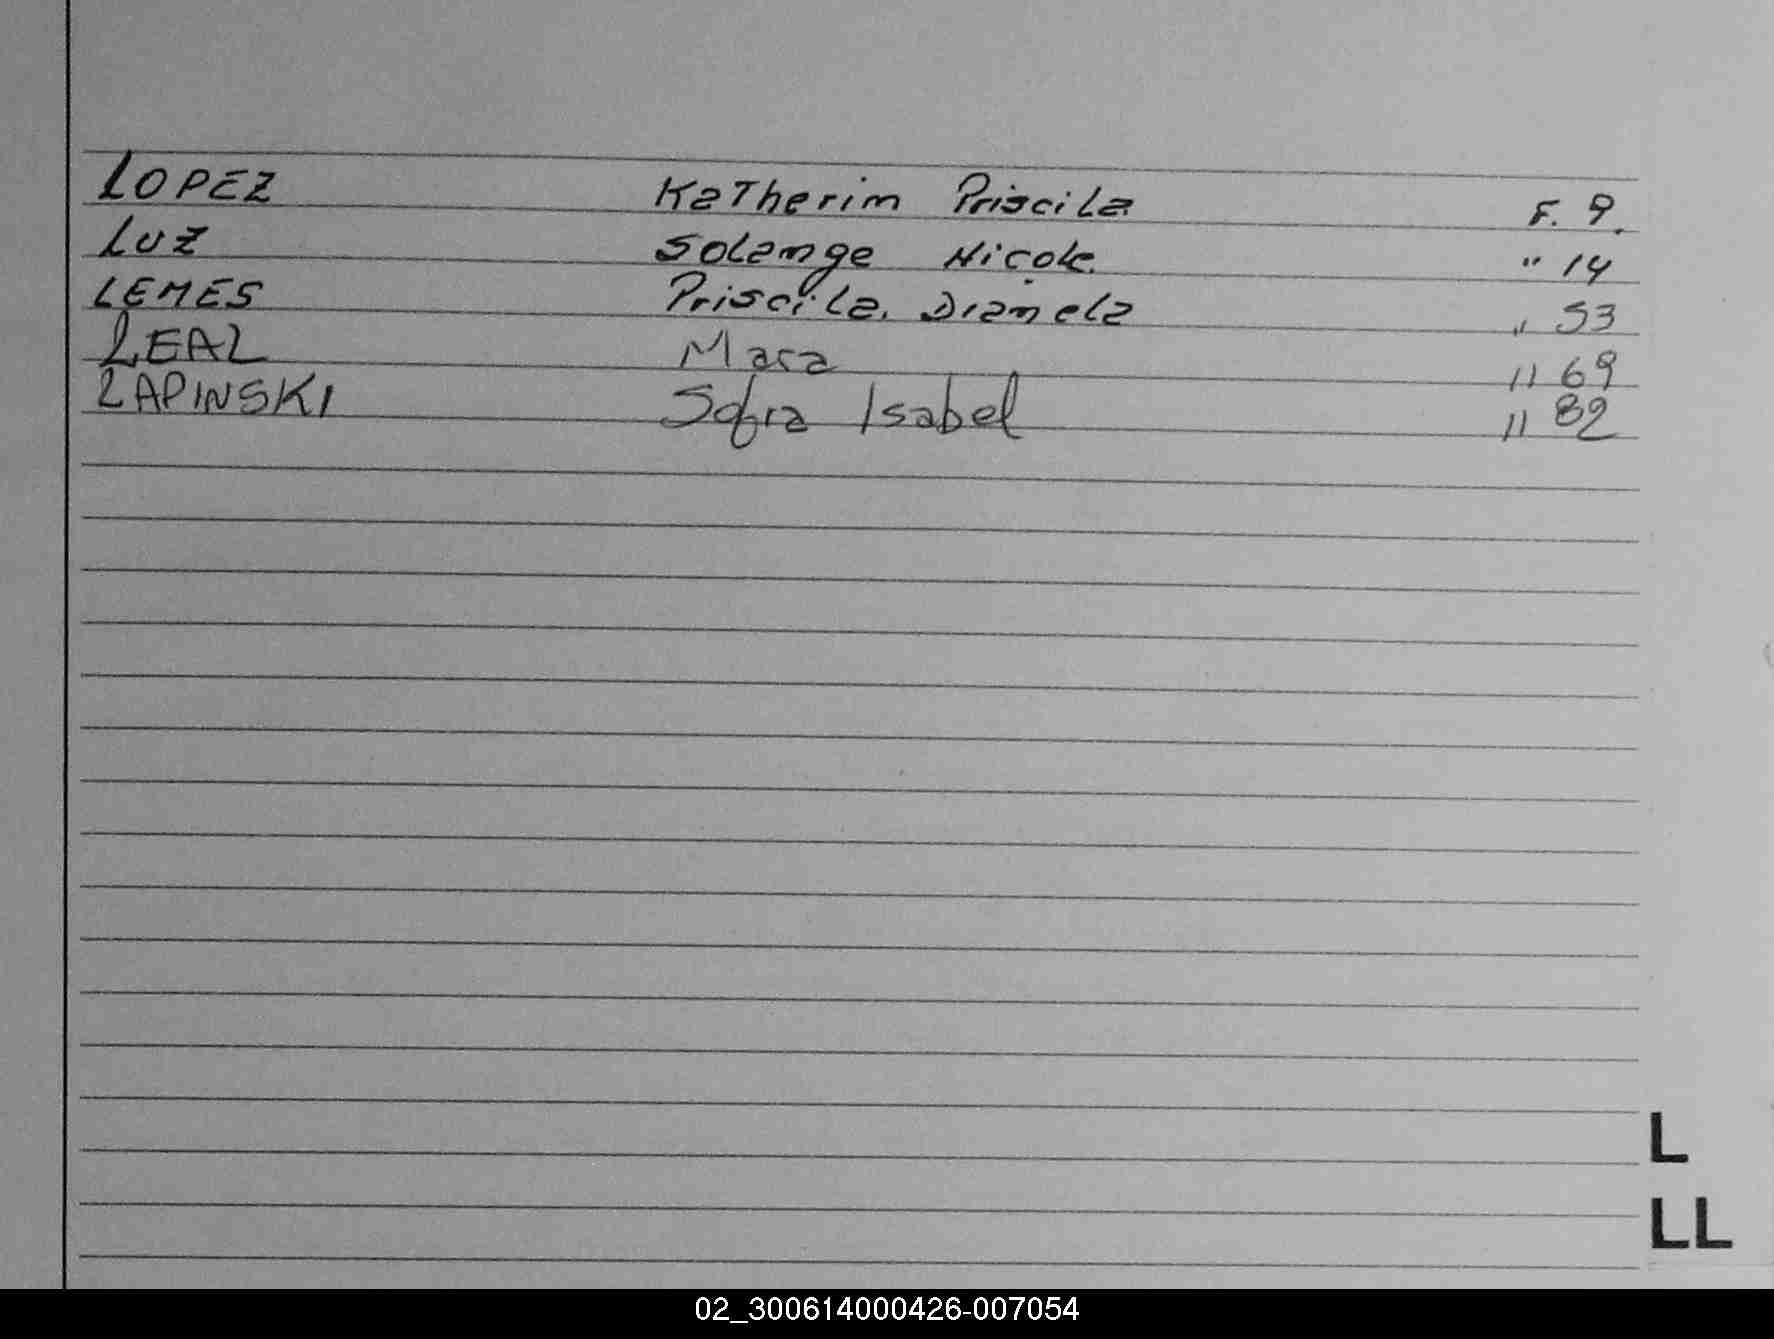 LOPEZ Katherin Priscila F. 9.
LUZ Solange Nicole. " 14
LEMES Priscila. Diamela " 53
LEAL Mara " 69
LAPINSKI Sofia Isabel " 82
L
LL
02_300614000426-007054